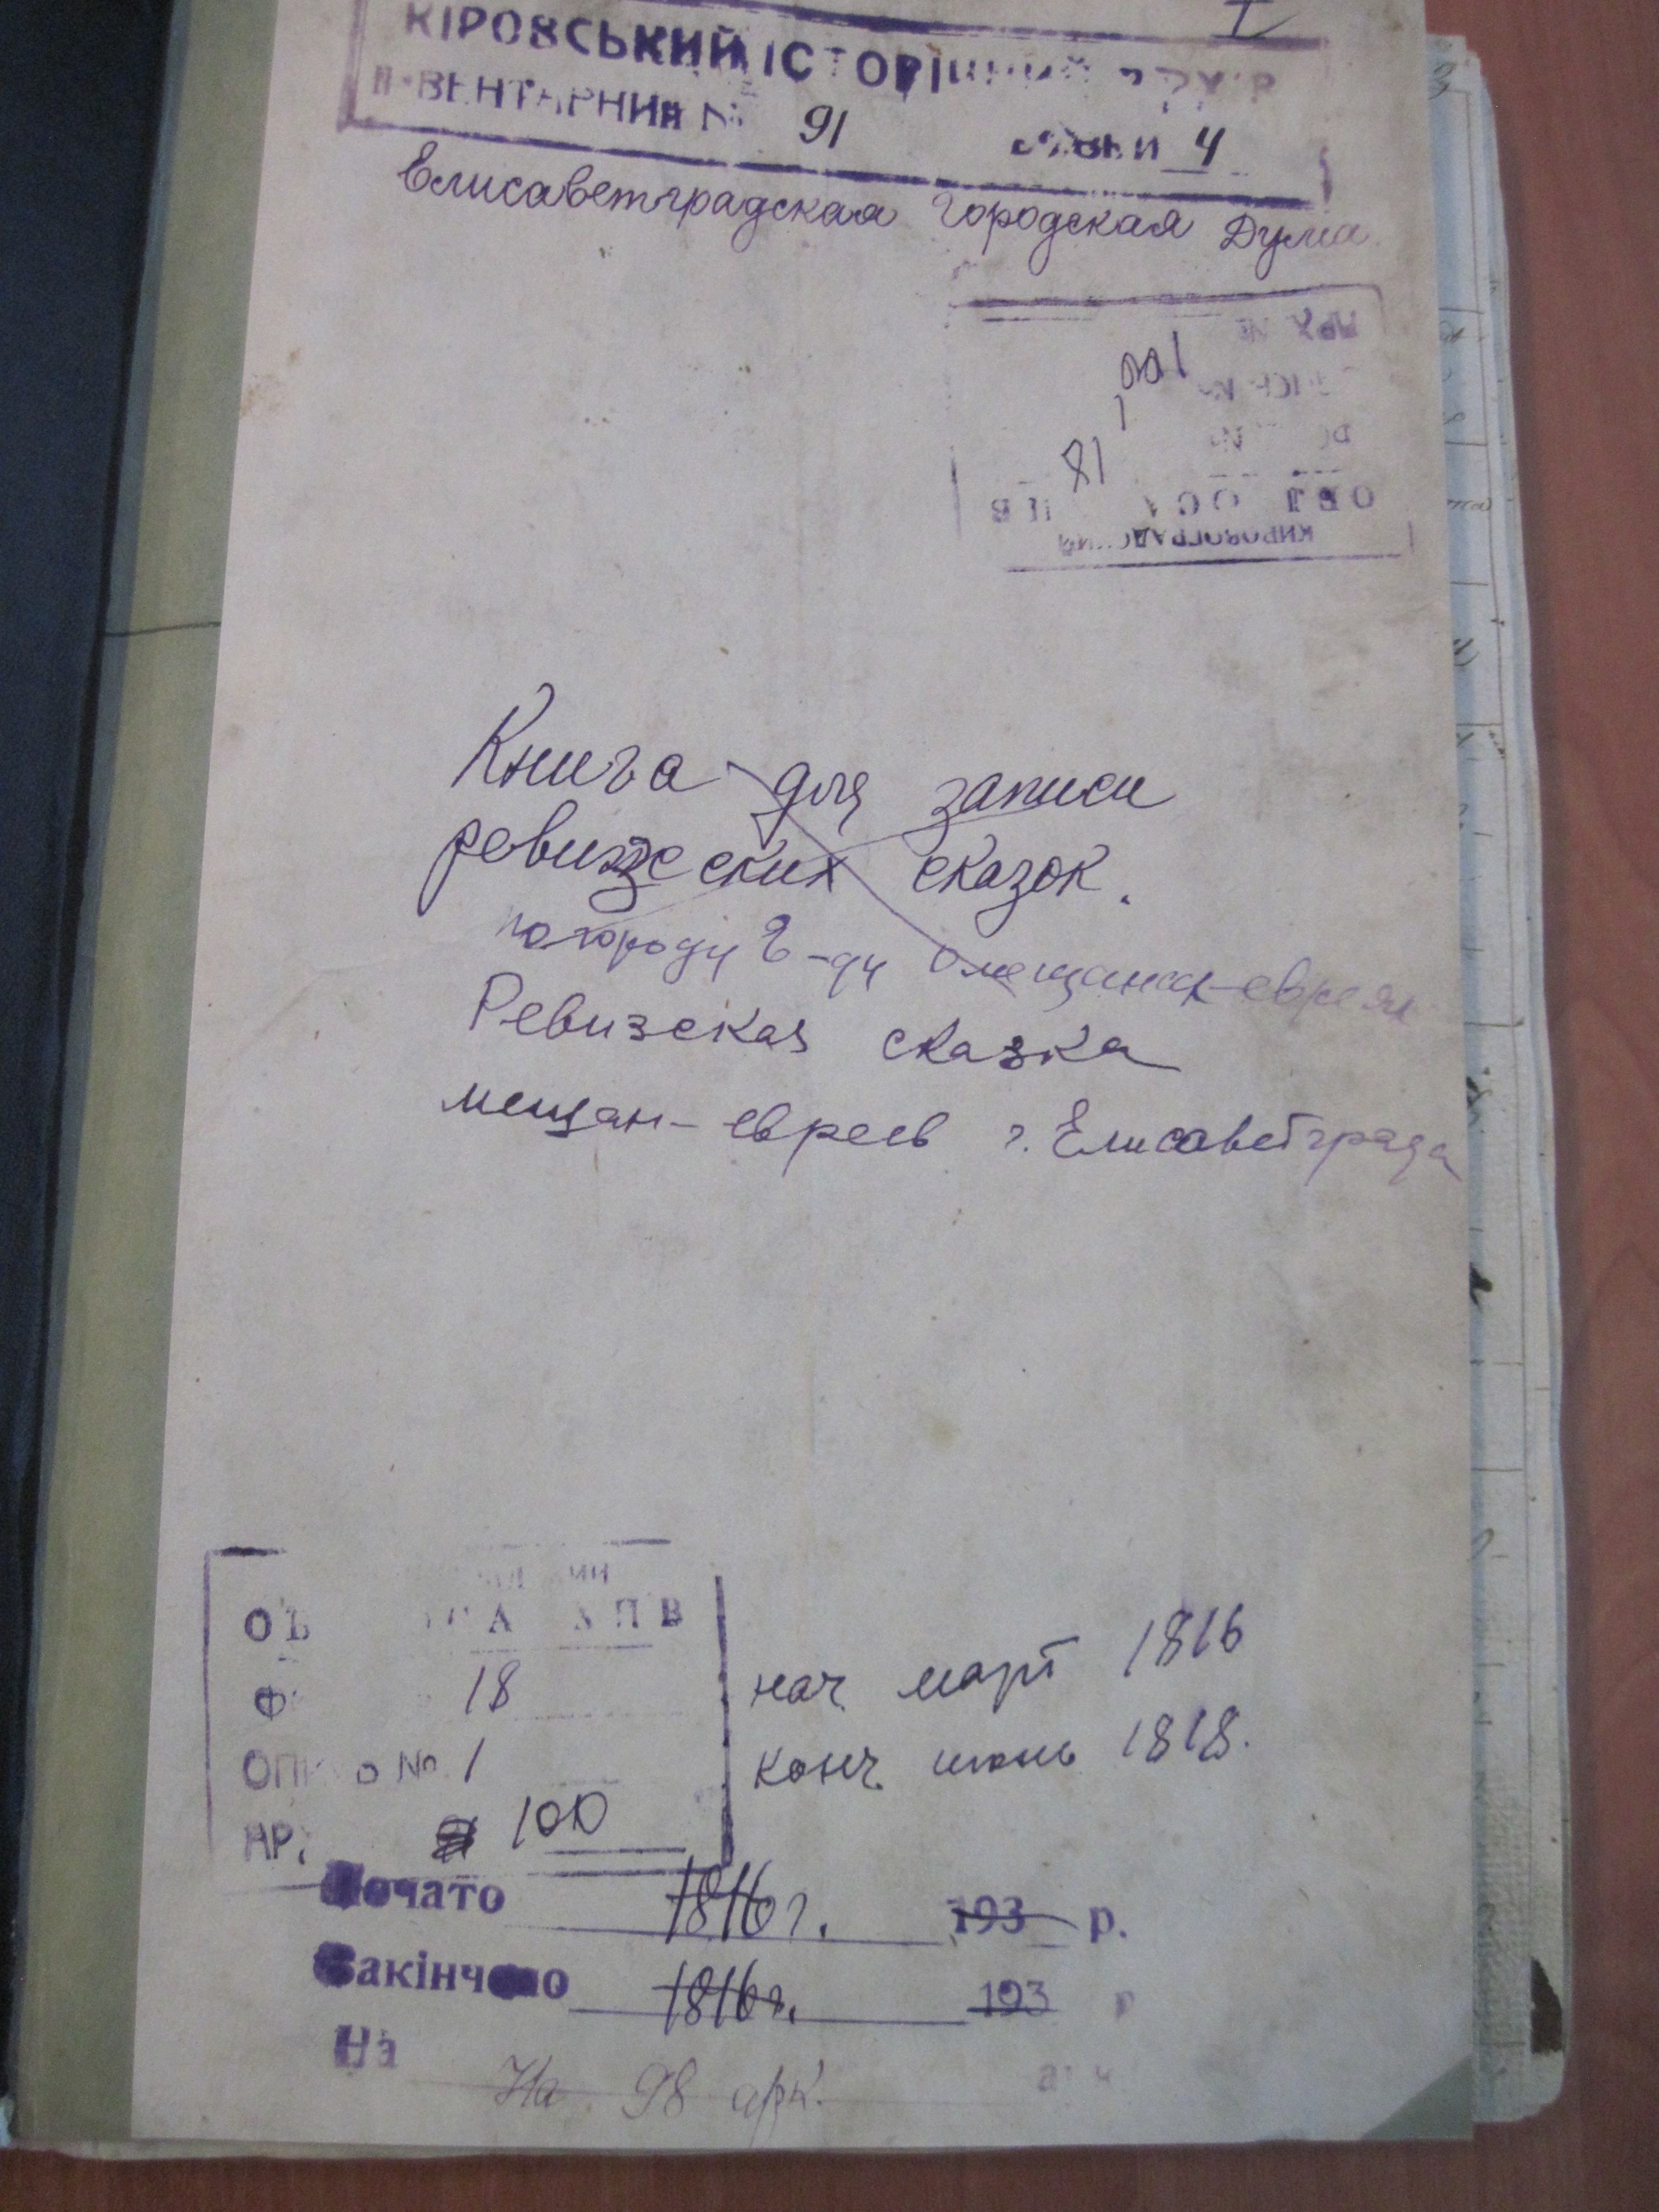 I
КІРОВСЬКИЙ ІСТОРІЧНИЙ АРХІВ
ІНВЕНТАРНИЙ № 91 4
Елисаветградская Городская Дума
100
1
18
КИРОВОГРАДСКИЙ
Книга для записи
ревизских сказок.
по городу Е-ду о мещанах-евреях
Ревизская сказка
мещан-евреев г. Елисаветграда
18
нач. март 1816
ОПИСЬ № 1
конч. июнь 1818.
100
Почато 1816 г. 193 р.
Закінчено 1816 г. 193 р
На
На 98 арк.